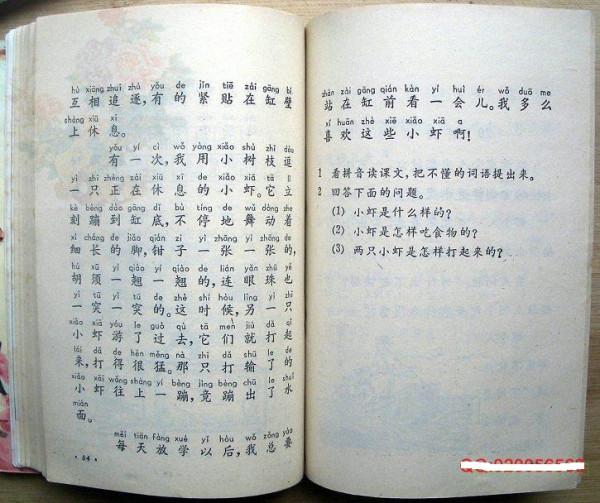 hù xiāng zhuī zhú yǒu de jǐn tiē zài gāng bì
互相追逐,有的紧贴在缸壁
shàng xiū xi
上休息。
yǒu yí cì wǒ yòng xiǎo shù zhī dòu
有一次,我用小树枝逗
yì zhī zhèng zài xiū xi de xiǎo xiā tā lì
一只正在休息的小虾。它立
kè bèng dào gāng dǐ bù tíng de wǔ dòng zhe
刻蹦到缸底,不停地舞动着
xì cháng de jiǎo qián zi yì zhāng yì zhāng de
细长的脚,钳子一张一张的,
hú xū yí qiào yí qiào de lián yǎn zhū yě
胡须一翘一翘的,连眼珠也
yì tū yì tū de zhè shí hòu lìng yì zhī
一突一突的。这时候,另一只
xiǎo xiā yóu le guò qù tā men jiù dǎ qǐ
小虾游了过去,它们就打起
lái dǎ de hěn měng nà zhī dǎ shū le de
来,打得很猛。那只打输了的
xiǎo xiā wǎng shàng yí bèng jìng bèng chū le shuǐ
小虾往上一蹦,竟蹦出了水
miàn
面。
měi tiān fàng xué yǐ hòu wǒ zǒng yào
每天放学以后,我总要
·84·
zhàn zài gāng qián kàn yí huìr wǒ duō me
站在缸前看一会儿。我多么
xǐ huān zhè xiē xiǎo xiā a
喜欢这些小虾啊!
1 看拼音读课文,把不懂的词语提出来。
2 回答下面的问题。
(1) 小虾是什么样的?
(2) 小虾是怎样吃食物的?
(3) 两只小虾是怎样打起来的?